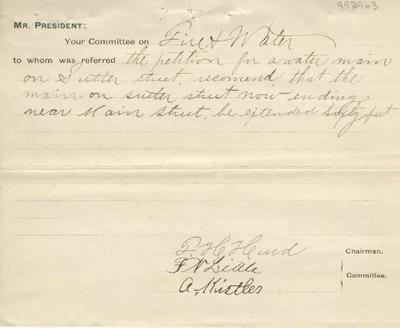 952963
MR. PRESIDENT:
Your Committee on Fire & Water
to whom was referred the petition for a water main
on Sutter street. recomend that the
main on sutter street now ending
near Main Street. be extended Sixty feet
Chairman.
F. N.
A. Kistler
Committee.